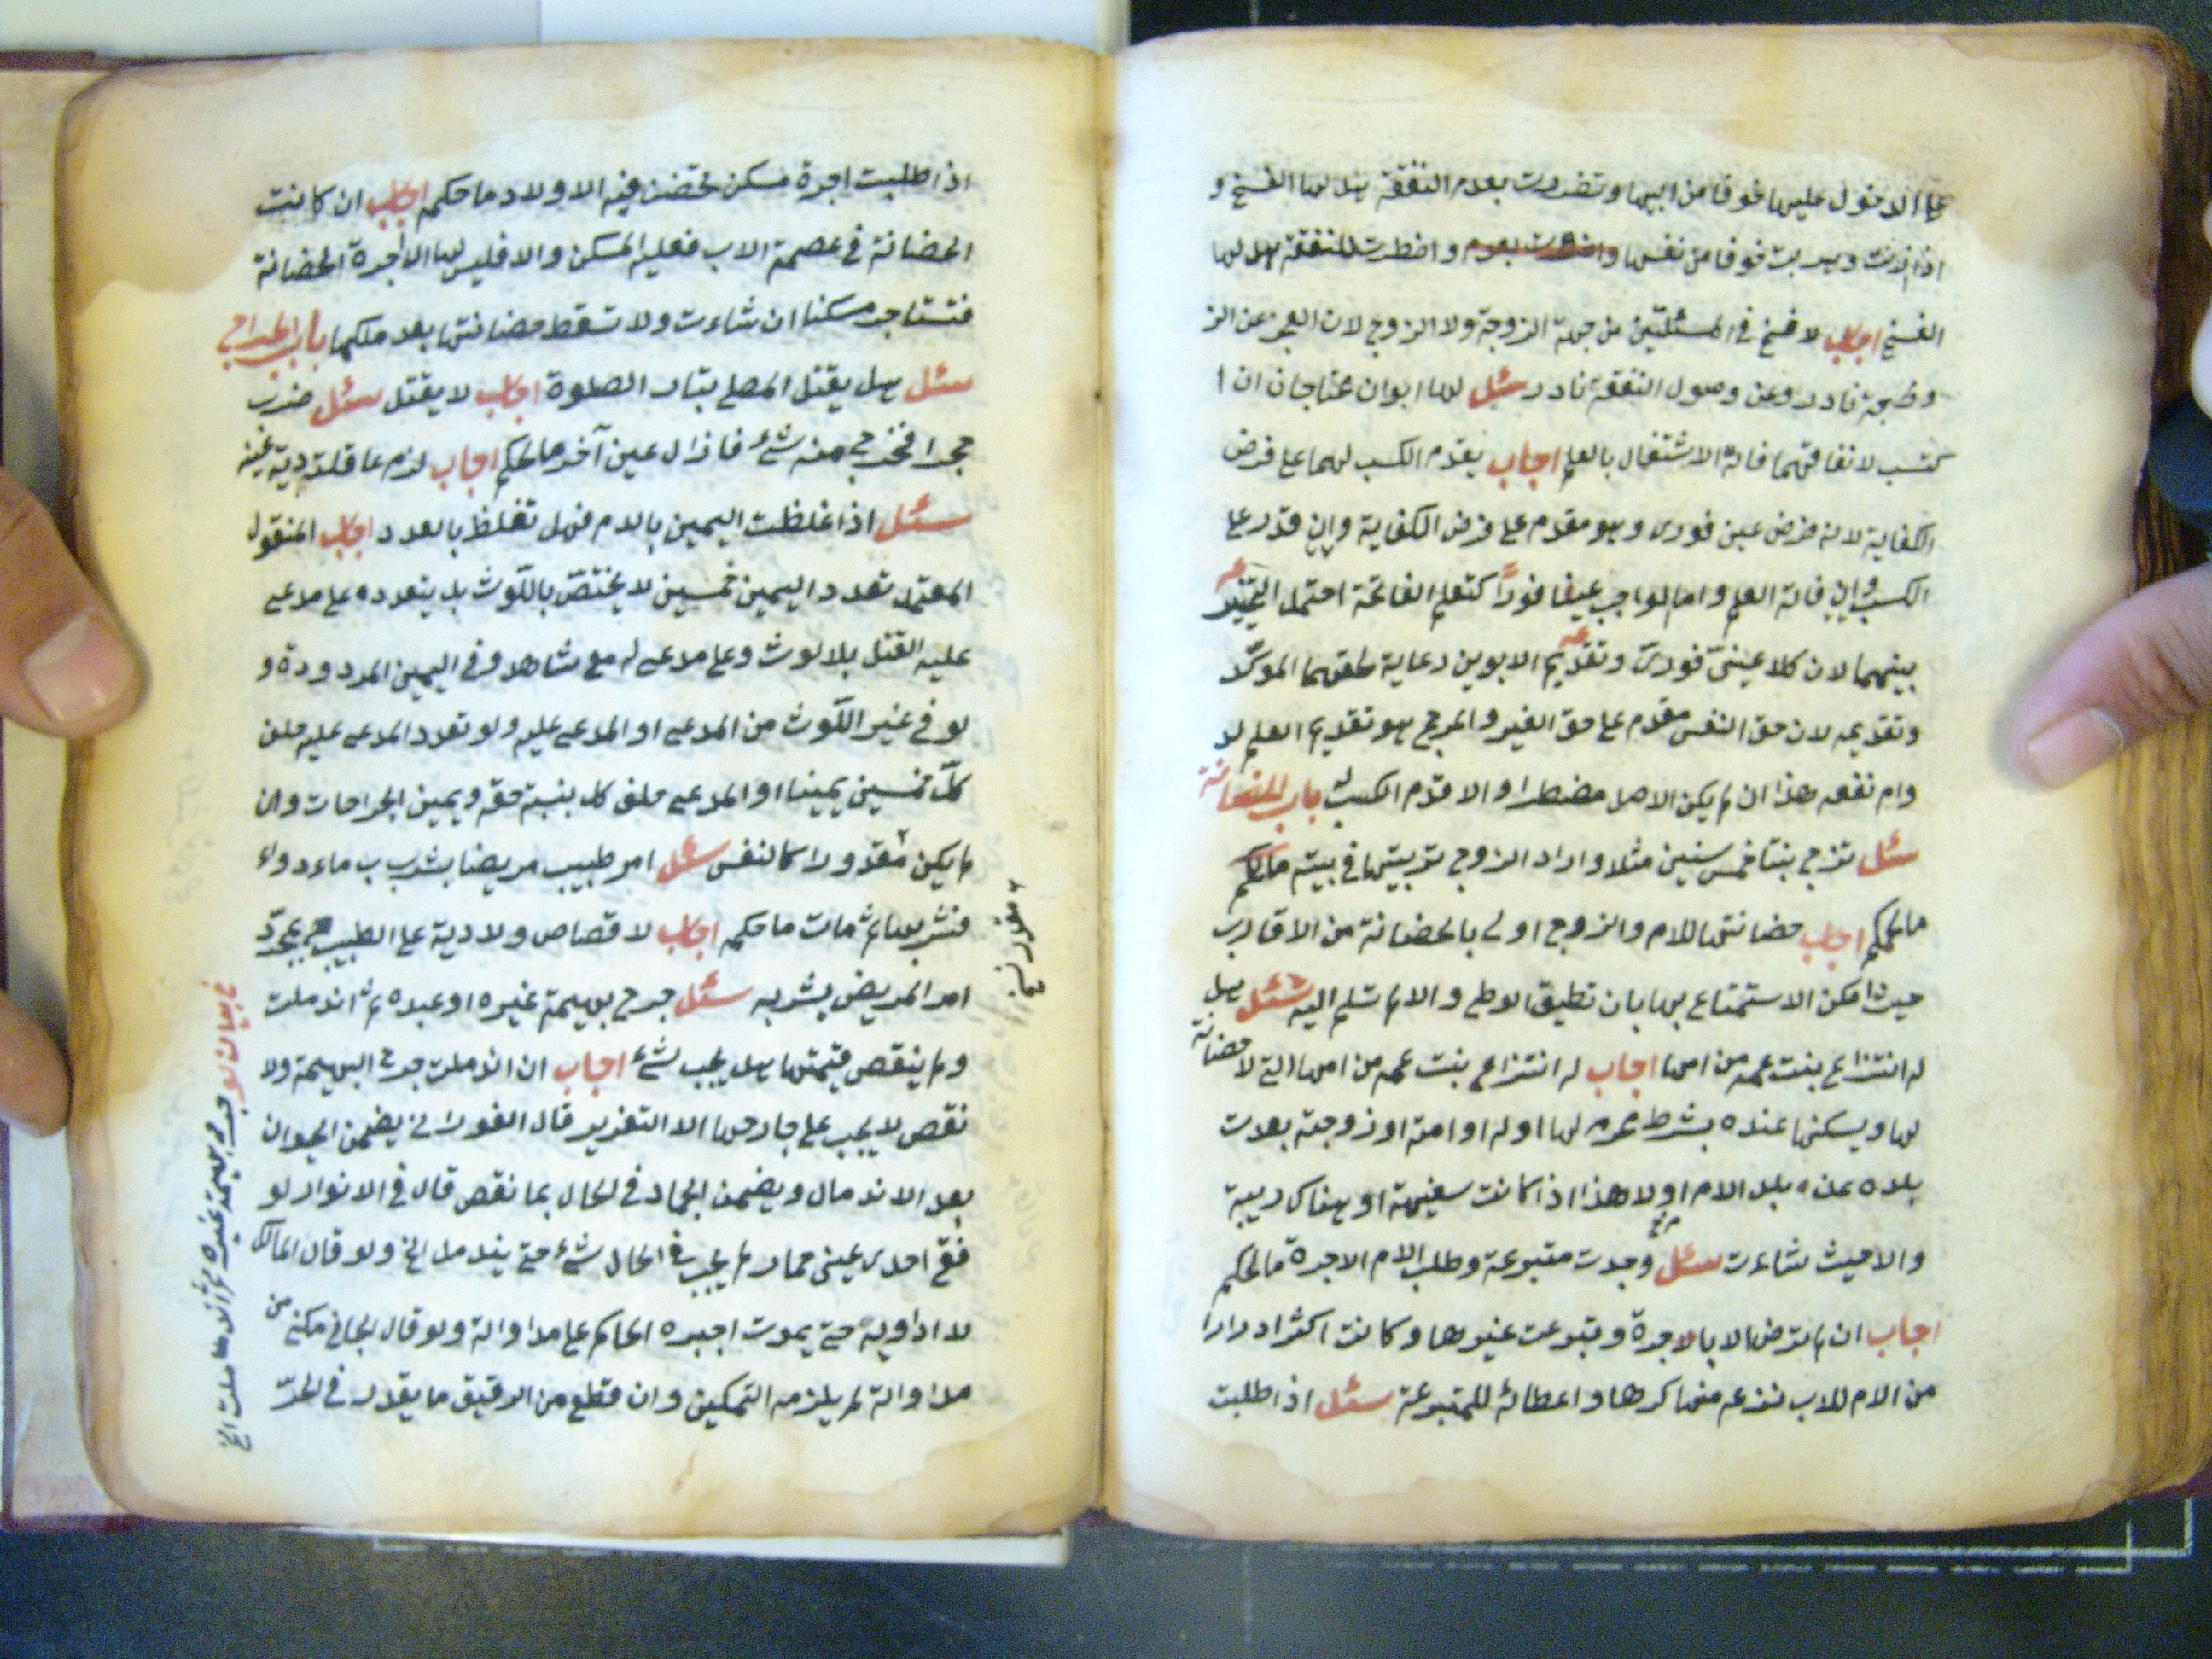 على الدخول عليها خوفا من ابيها وتضررت بعدم النفقة هل لها الفسخ و
اذا اذنت وهربت خوفا من نفسها واضطرت للنفقة هل لها
الفسخ اجاب لا فسخ في المسئلتين من جهة الزوجة ولا الزوج لان العجز عن الز
وجة نادر وعن وصول النفقة نادر سئل لها ابوان محتاجان ان ا
كتسب لانفاقهما فاته الاشتغال بالعلم اجاب يقدم الكسب لهما على فرض
الكفاية لانه فرض عين فوري وهو مقدم على فرض الكفاية وان قدر على
الكسب وان فاته العلم واما الواجب عينا فورًا كتعلم الفاتحة احتمل التخيير
بينهما لان كلا عينيّ فوريّ وتقديم الابوين رعاية لحقهما الموكّد
وتقديمه لان حق النفس مقدم على حق الغير والمرجح هو تقديم العلم لد
وام نفعه هذا ان لم يكن الاصل مضطرا والا قدم الكسب باب الحضانة
سئل تزوج بنتا خمس سنين مثلا واراد الزوج تربيتها في بيته
ما الحكم اجاب حضانتها للام والزوج اولى بالحضانة من الاقارب
حيث امكن الاستمتاع بها بان تطيق الوطى والا لم تسلم اليه سئل هل
له انتزاع بنت عمه من امها اجاب له انتزاع بنت عمه من امها التي لا حضانة
لها ويسكنها عنده بشرط محرم لها او له او امته او زوجته بعدت
بلده عن بلد الام اولا هذا اذا كانت سفيهة او هناك ريبة
والا حيث شاءت سئل وجدت متبرعة وطلب الام الاجرة ما الحكم
اجاب ان لم ترض الا بالاجرة وتبرعت غيرها وكانت اكثر ادرارا
من الام للاب نزعه منها كرها واعطائه للمتبرعة سئل اذا طلبت
اذا طلبت اجرة مسكن تحضن فيه الاولاد ما حكم اجاب ان كانت
الحضانة في عصمة الاب فعليه المسكن والا فليس لها الا اجرة الحضانة
فتستاجر مسكنا ان شاءت ولا تسقط حضانتها بعد ملكها باب الجراح
سئل هل يقتل المصلي بتارك الصلوة اجاب لا يقتل سئل ضرب
حجرا فخرج منه شئ فازال عين آخر ما الحكم اجاب لزم عاقلته دية عينه
سئل اذا غلظت اليمين بالدم فهل تغلظ بالعدد اجاب المنقول
المعتمد تعدد اليمين خمسين لا يختصّ باللّوث بل يتعدد على مدعى
عليه القتل بلا لوث وعلى مدعى له مع شاهد وفي اليمين المردودة و
لو في غير اللّوث من المدعى او المدعى عليه ولو تعدد المدعى عليه حلف
كلّ خمسين يمينا او المدعى حلف كل بنسبة حقه ويمين الجراحات وان
لم يكن مقدورا كالنفس سئل امر طبيب مريضا بشرب ماء دواء
فشربها ثم مات ما حكم اجاب لا قصاص ولا دية على الطبيب بمجرّد
امر المريض بشربه سئل جرح بهيمة غيره او عبده ثم اندملت
ولم ينقص قيمتها هل يجب شئ اجاب ان اندملت جرح البهيمة ولا
نقص لا يجب على جارحها الا التعزير قال الفوراني يضمن الحيوان
بعد الاندمال ويضمن الجماد في الحال بما نقص قال في الانوار لو
فقع احدى عيني حمار لم يجب في الحال شئ حتى يندمل الخ ولو قال المالك
لا اداويه حتى يموت اجبره الحاكم على مداواته ولو قال الجاني مكني من
مداواته لم يلزمه التمكين وان قطع من الرقيق ما يقدر في الحرّ
مقدر نخ
في بيان لو جرح بهيمة غيره ثم اندملت الخ